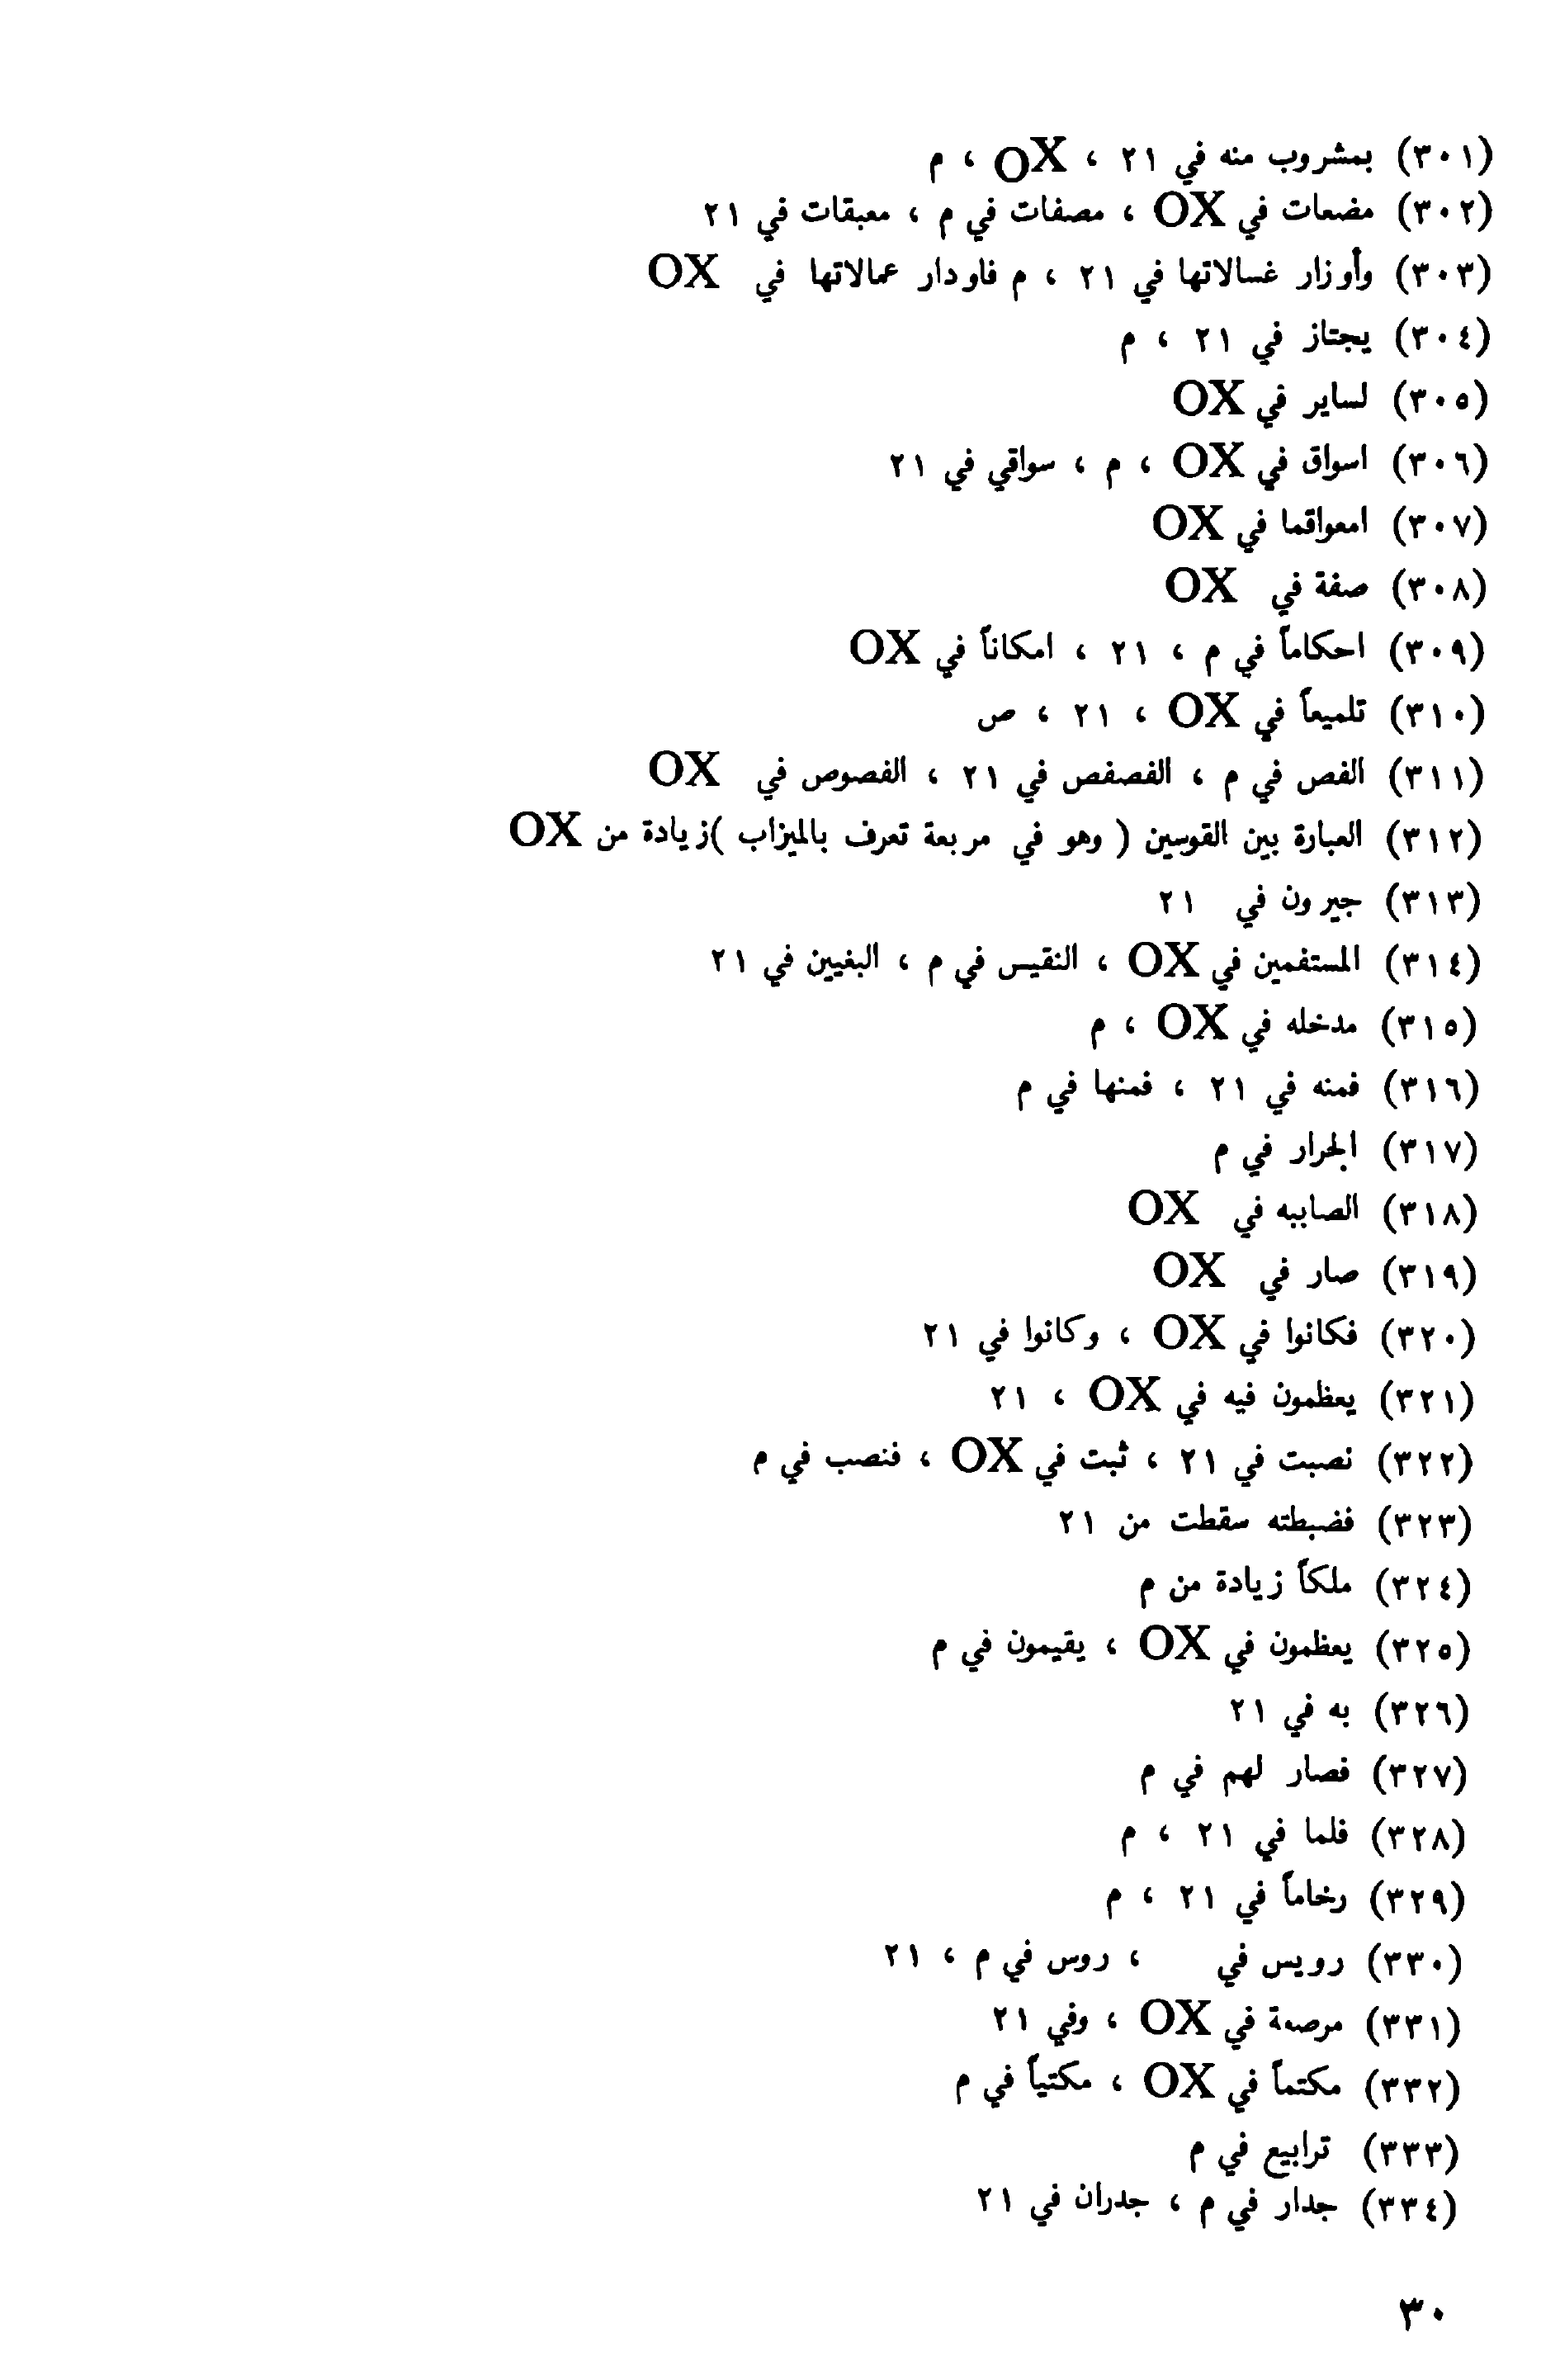 (٣٠١) بمشروب منه في ٢١ ، OX ، م
(٣٠٢) مضعات في OX ، مصفات في م ، معبقات في ٢١
(٣٠٣) وأوزار غسالاتها في ٢١ ، م فاودار عمالاتها في OX
(٣٠٤) يجتاز في ٢١ ، م
(٣٠٥) لساير في OX
(٣٠٦) اسواق في OX ، م ، سواقي في ٢١
(٣٠٧) امعواقما في OX
(٣٠٨) صفة في OX
(٣٠٩) احكاماً في م ، ٢١ ، امكاناً في OX
(٣١٠) تلميعاً في OX ، ٢١ ، ص
(٣١١) الفص في م ، الفصفص في ٢١ ، الفصوص في OX
(٣١٢) العبارة بين القوسين ( وهو في مربعة تعرف بالميزاب )زيادة من OX
(٣١٣) جيرون في ٢١
(٣١٤) المستفمين في OX ، النقيس في م ، البغيين في ٢١
(٣١٥) مدخله في OX ، م
(٣١٦) فمنه في ٢١ ، فمنها في م
(٣١٧) الجرار في م
(٣١٨) الصاببه في OX
(٣١٩) صار في OX
(٣٢٠) فكانوا في OX ، وكانوا في ٢١
(٣٢١) يعظمون فيه في OX ، ٢١
(٣٢٢) نصبت في ٢١ ، ثبت في OX ، فنصب في م
(٣٢٣) فضبطته سقطت من ٢١
(٣٢٤) ملكاً زيادة من م
(٣٢٥) يعظمون في OX ، يقيمون في م
(٣٢٦) به في ٢١
(٣٢٧) فصار لهم في م
(٣٢٨) فلما في ٢١ ، م
(٣٢٩) رخاماً في ٢١ ، م
(٣٣٠) رويس في ، روس في م ، ٢١
(٣٣١) في OX ، وفي ٢١
(٣٣٢) مكتماً في OX ، مكتياً في م
(٣٣٣) ترابيع في م
(٣٣٤) جدار في م ، جدران في ٢١
٣٠